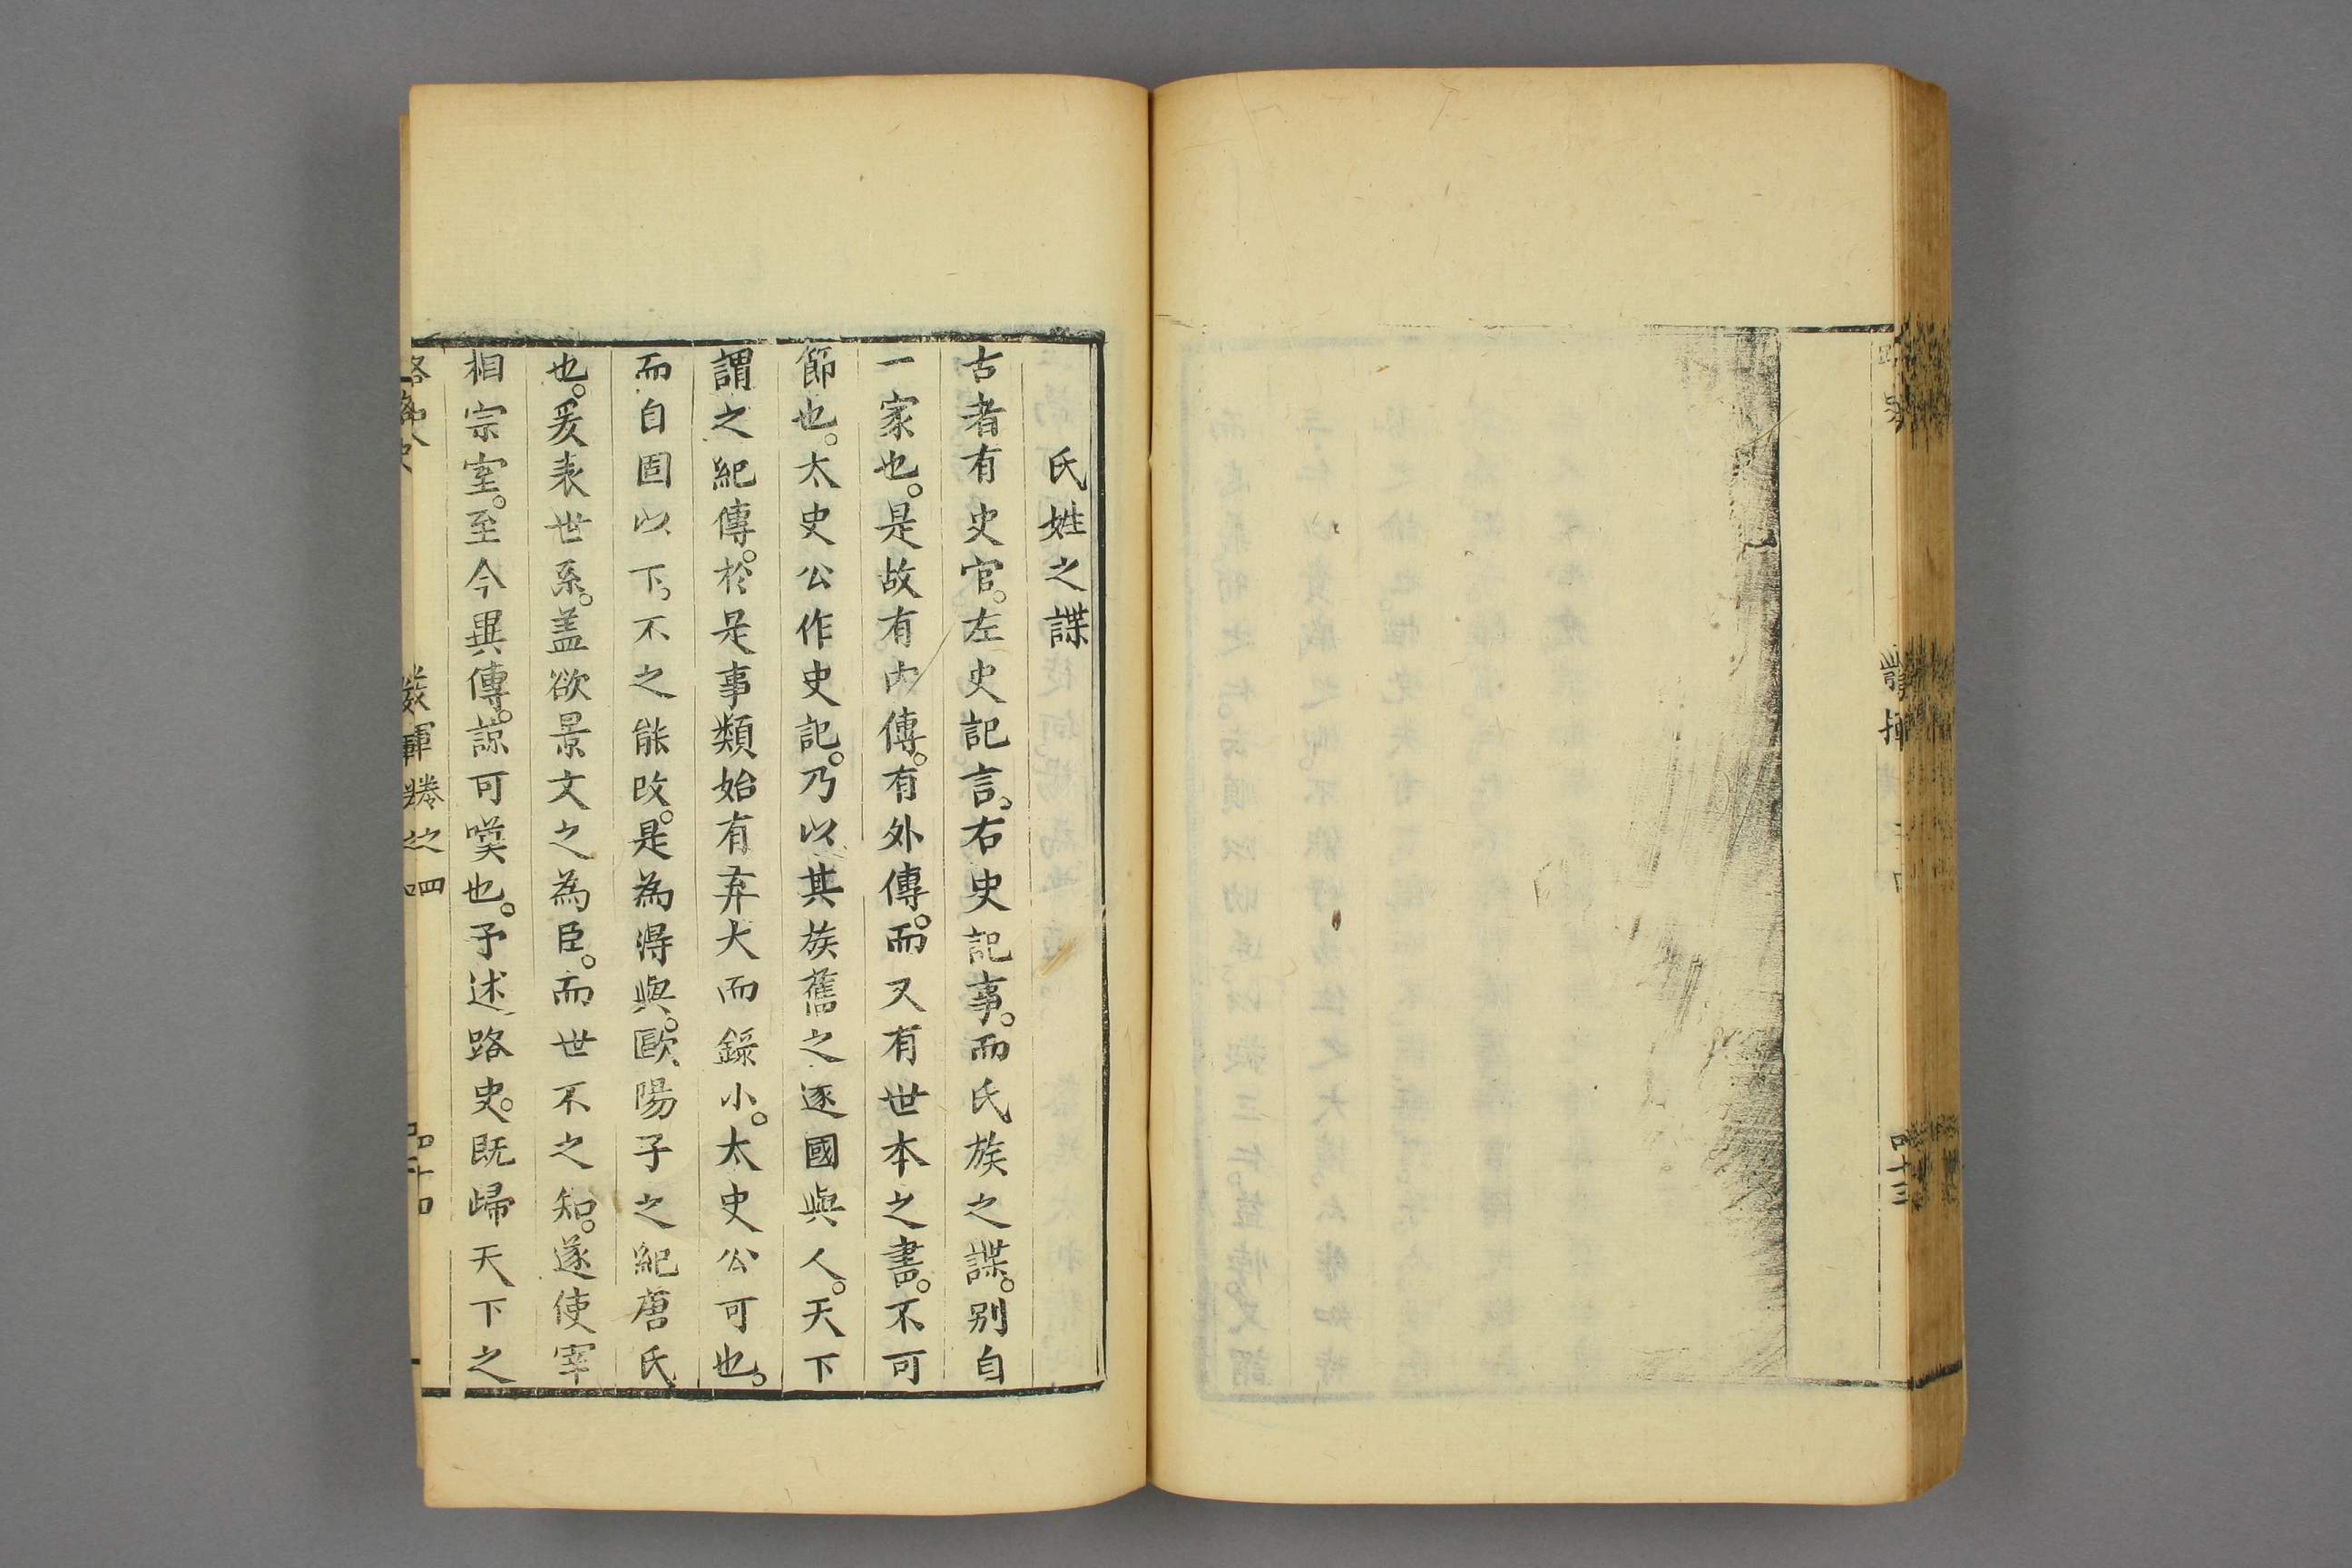 氏姓之諜
古者有史官。左史記言。右史記事。而氏族之諜。别自
一家也。是故有内傳。有外傳。而又有世本之書。不可
節也。太史公作史記。乃以其族舊之逐國與人。天下
謂之紀傳。於是事類始有弃大而錄小。太史公可也。
而自固以下。不之能改。是為得與。歐陽子之紀唐氏
也。爰表世系。盖欲景文之為臣。而世不之知。遂使宰
相宗室。至今異傳。諒可嘆也。予述路史。既歸天下之